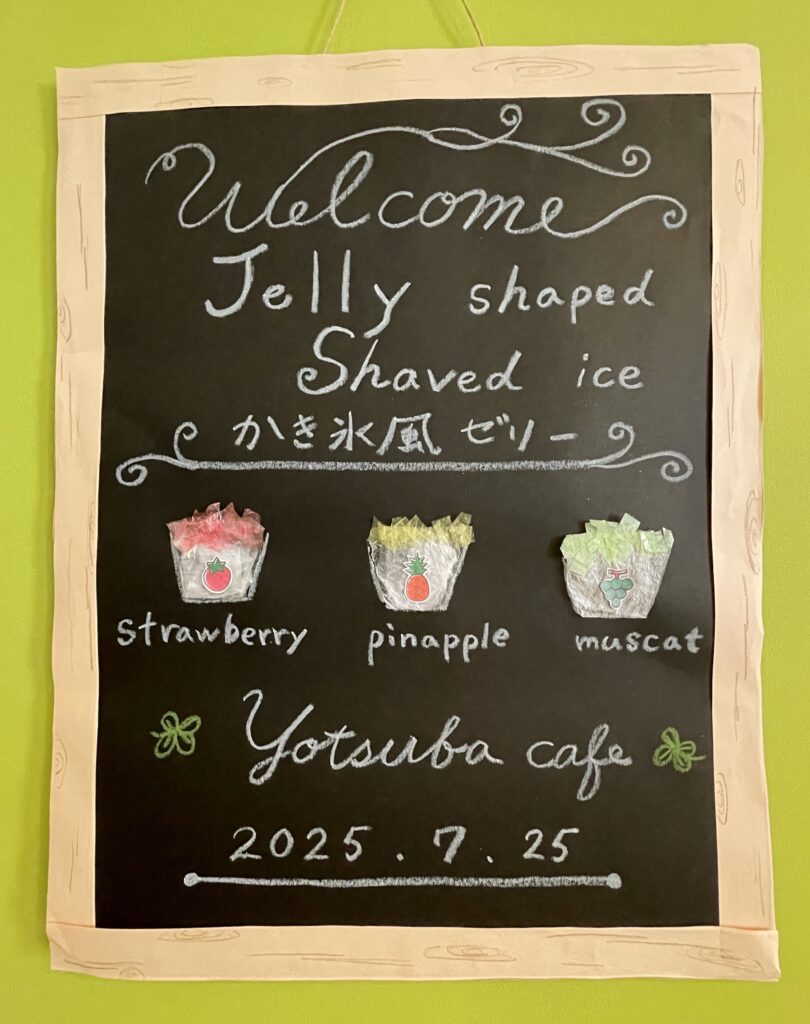 Welcome
Jelly shaped
Shaved ice
かき氷風 ゼリー
strawberry pinapple muscat
Yotsuba cafe
2025.7.25